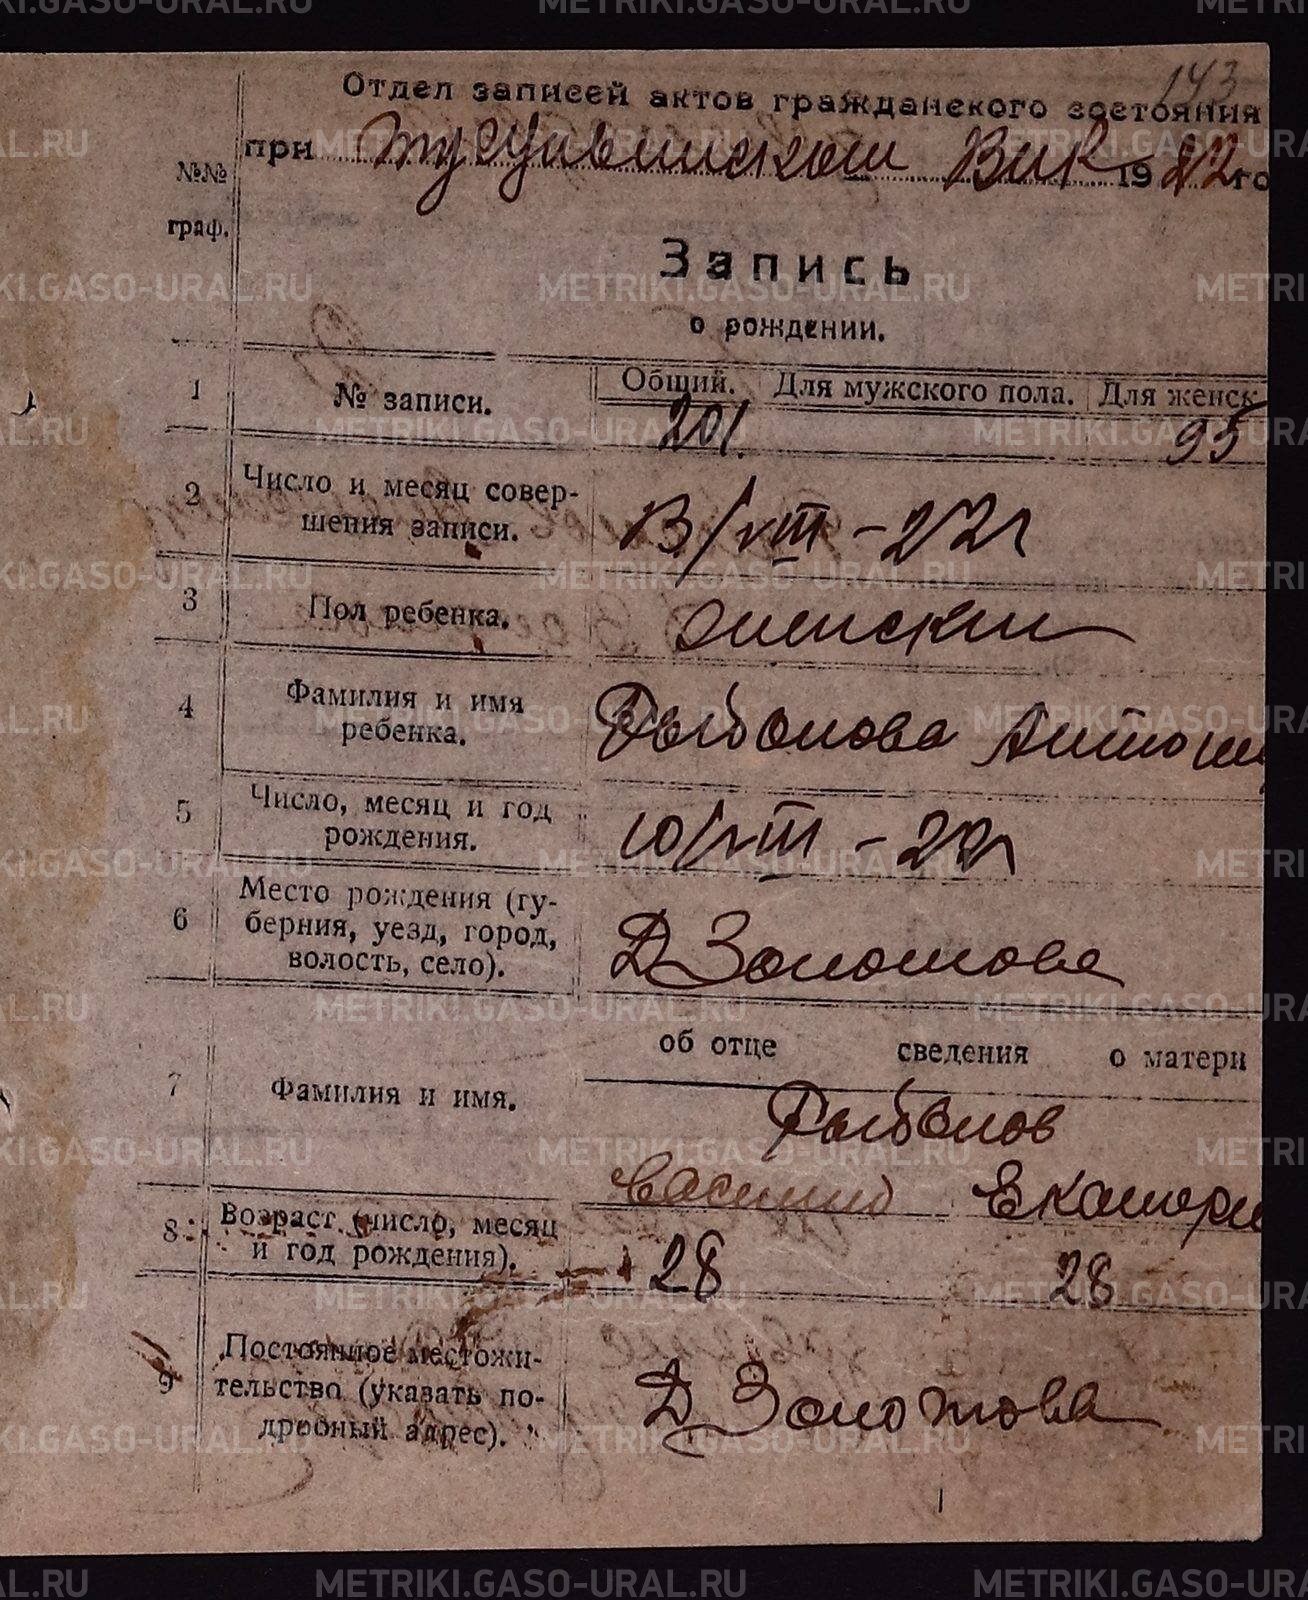 143
Отдел записей актов гражданского состояния
при Тусулвинском Вик 1922 го
№№
граф.
Запись
о рождении.
1 № записи. Общий. Для мужского пола. Для женск
201. 95
2 Число и месяц совер-
шения записи. 13/VIII - 22г
3 Пол ребенка. женский
4 Фамилия и имя
ребенка. Рыболова Антони
5 Число, месяц и год
рождения. 10/VIII - 22г
6 Место рождения (гу-
берния, уезд, город,
волость, село). Д Золотова
об отце сведения о матери
7 Фамилия и имя. Рыболов
Василий Екатери
8 Возраст (число, месяц
и год рождения). 28 28
9 Постоянное местожи-
тельство (указать по-
дробный адрес). Д Золотова
METRIKI.GASO-URAL.RU